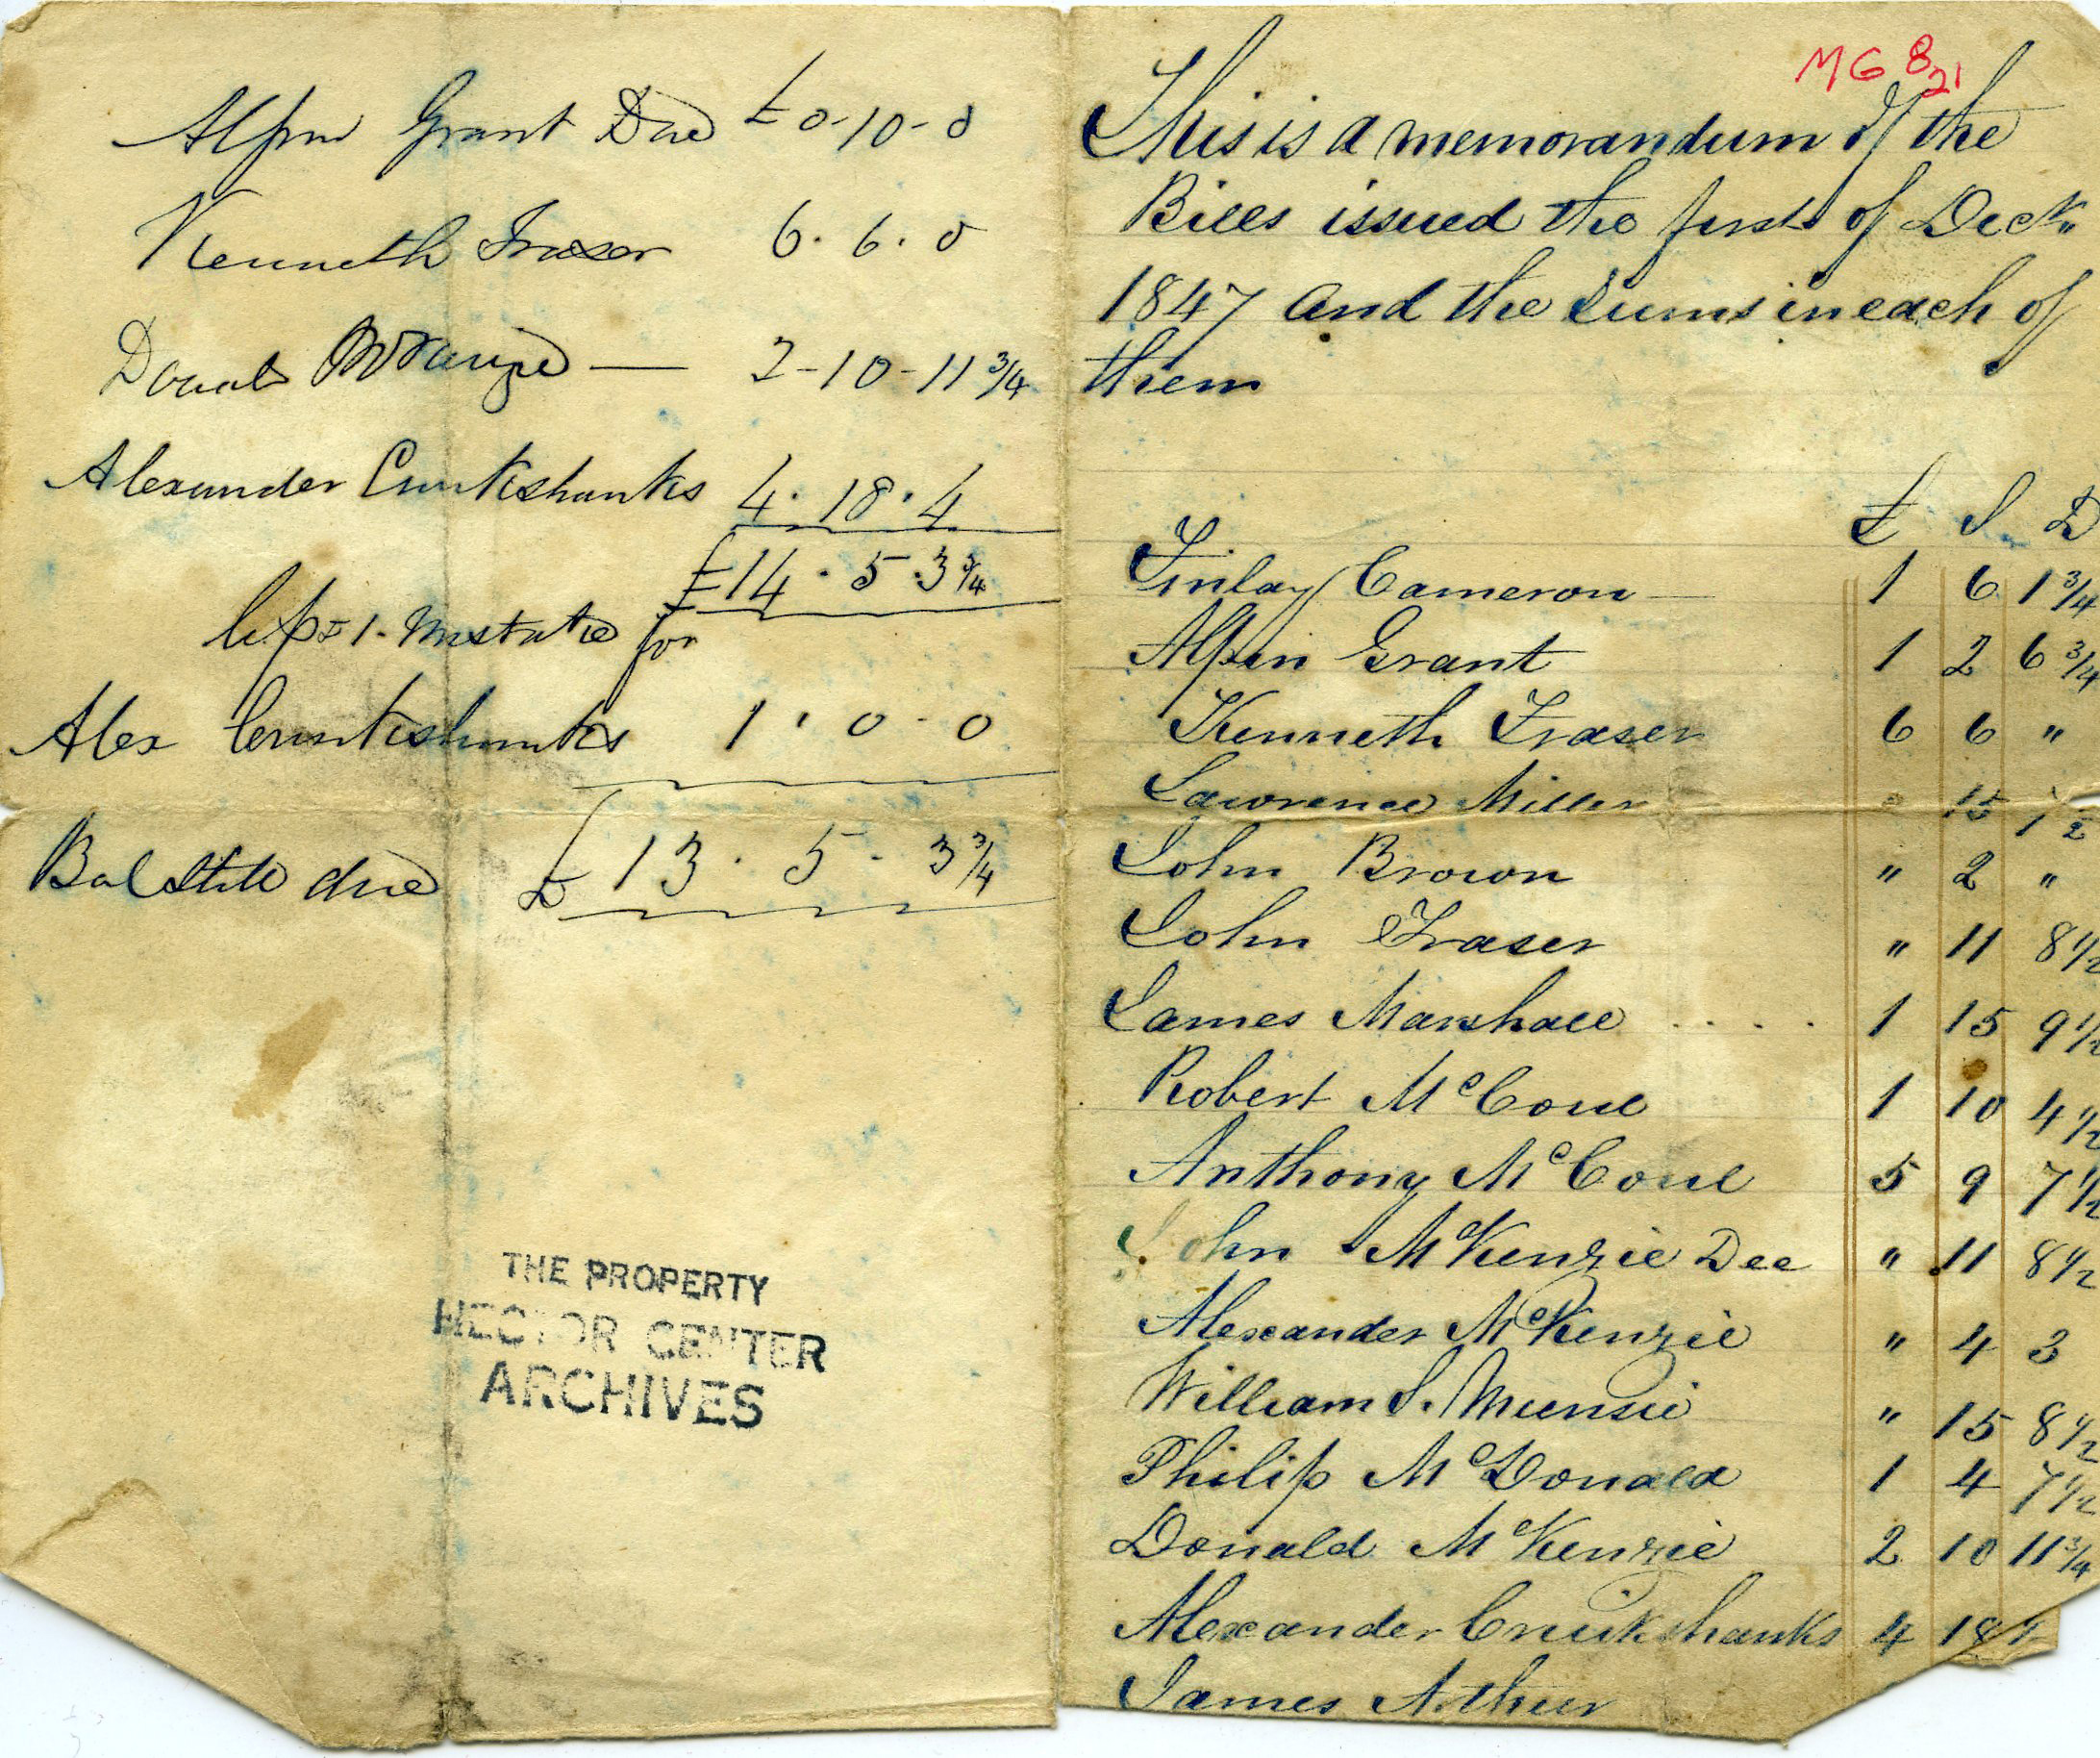 Alpin Grant Due £ 0-10-0
Kenneth Fraser 6. 6. 0
Donald McKenzie — 2-10-11 3/4
Alexander Cruikshanks 4. 18. 4
£14. 5. 3 3/4
for
Alex Cruikshanks 1. 0-0
Bal Still due £ 13. 5. 3 3/4
THE PROPERTY
HECTOR CENTER
ARCHIVES
MG 8 21
This is a memorandum of the
Bills issued the first of Decr.
1847 and the sums in each of
them
£ S. D
Finlay Cameron 1 6 1 3/4
Alpin Grant 1 2 6 3/4
Kenneth Fraser 6 6 "
Lawrence Miller " 15 7 1/2
John Brown " 2 "
John Fraser " 11 8 1/2
James Marshall .... 1 15 9 1/2
Robert McCoul 1 10 4 1/2
Anthony McCoul 5 9 7 1/2
John McKenzie Dee " 11 8 1/2
Alexander McKenzie " 4 3
William S. Munsie " 15 8 1/2
Philip McDonald 1 4 7 1/2
Donald McKenzie 2 10 11 3/4
Alexander Cruikshanks 4 18 4
James Arthur